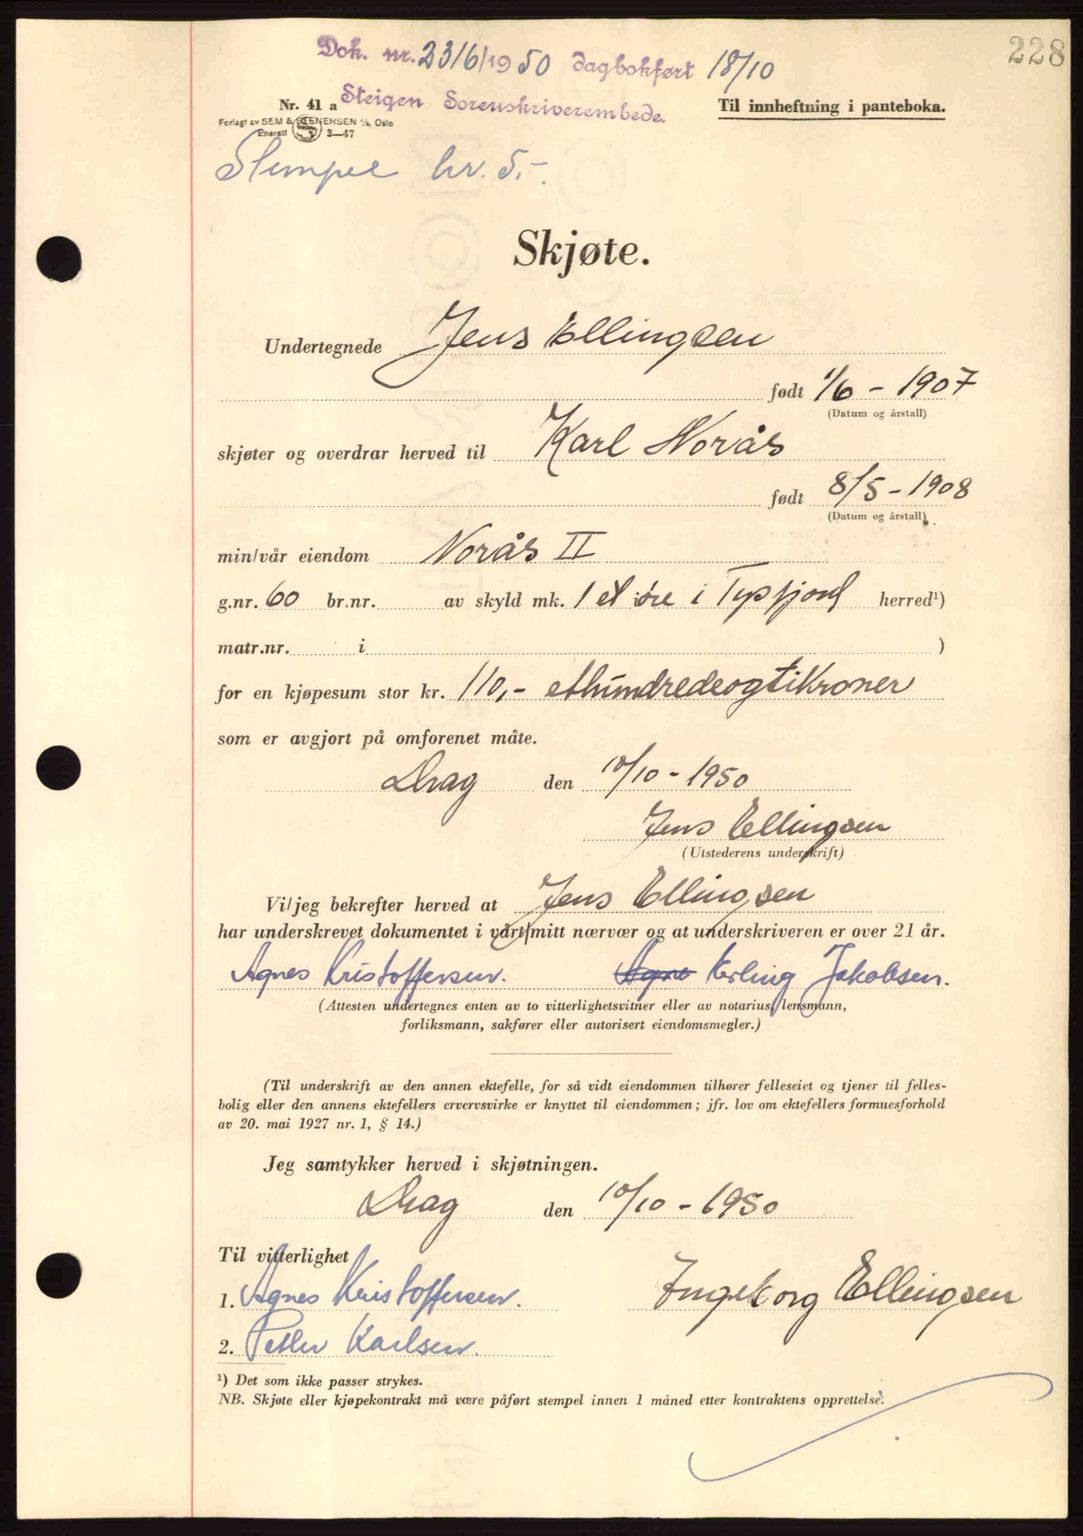 228
Dok. nr. 2316/1950 dagbokført 18/10
Steigen Sorenskriverembede.
Nr. 41 a
Til innheftning i panteboka.
Forlagt av SEM & STENERSEN A/S, Oslo
Enerett 3—47
Stempel kr. 5,-.
Skjøte.
Undertegnede Jens Ellingsen
født 1/6 - 1907
(Datum og årstall)
skjøter og overdrar herved til Karl Norås
født 8/5 - 1908
(Datum og årstall)
min/vår eiendom Norås II
g.nr. 60 br.nr. av skyld mk. 1 et øre i Tysfjord herred¹)
matr.nr. i )
for en kjøpesum stor kr. 110,- ethundredeogtikroner
som er avgjort på omforenet måte.
Drag den 10/10 - 1950
Jens Ellingsen
(Utstederens underskrift)
Vi/jeg bekrefter herved at Jens Ellingsen
har underskrevet dokumentet i vårt/mitt nærvær og at underskriveren er over 21 år.
Agnes Kristoffersen. Agnes Erling Jakobsen.
(Attesten undertegnes enten av to vitterlighetsvitner eller av notarius, lensmann,
forliksmann, sakfører eller autorisert eiendomsmegler.)
(Til underskrift av den annen ektefelle, for så vidt eiendommen tilhører felleseiet og tjener til felles-
bolig eller den annens ektefellers ervervsvirke er knyttet til eiendommen; jfr. lov om ektefellers formuesforhold
av 20. mai 1927 nr. 1, § 14.)
Jeg samtykker herved i skjøtningen.
Drag den 10/10 - 1950
Til vitterlighet
1. Agnes Kristoffersen.
Ingeborg Ellingsen
2. Petter Karlsen.
¹) Det som ikke passer strykes.
NB. Skjøte eller kjøpekontrakt må være påført stempel innen 1 måned etter kontraktens opprettelse.